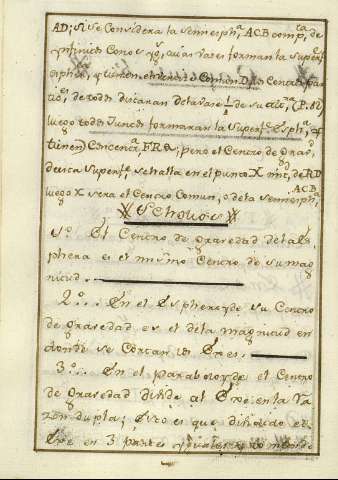 AD; Si se Considera la Semiesph.ª ACB comp.ta de
ynfinitos Conos q.e, cuias vases forman la Superf.
espher, y tienen el vertice Comun D, los Centros par
de todos distaran de la vase ¼ de su
luego todos Juntos formaran la Superf.e Esph.ª, q.e
tiene Concentr.ª FRG; pero el Centro de grav.d
de esta Superf.e se halla en el punto X mit.d de RD
luego X sera el Centro Comun, o de la Semiesph.ª
ACB.
Scholios
1.º El Centro de gravedad de la Es
phera es el mismo Centro de su mag
nitud.
2.º En el Espheroyde su Centro
de gravedad es el de la magnitud en
donde se Cortan los Exes.
3.º En el paraboloyde el Centro
de gravedad divide al Exe en la Ra
zon dupla; esto es que dividido el
Exe en 3 partes yguales